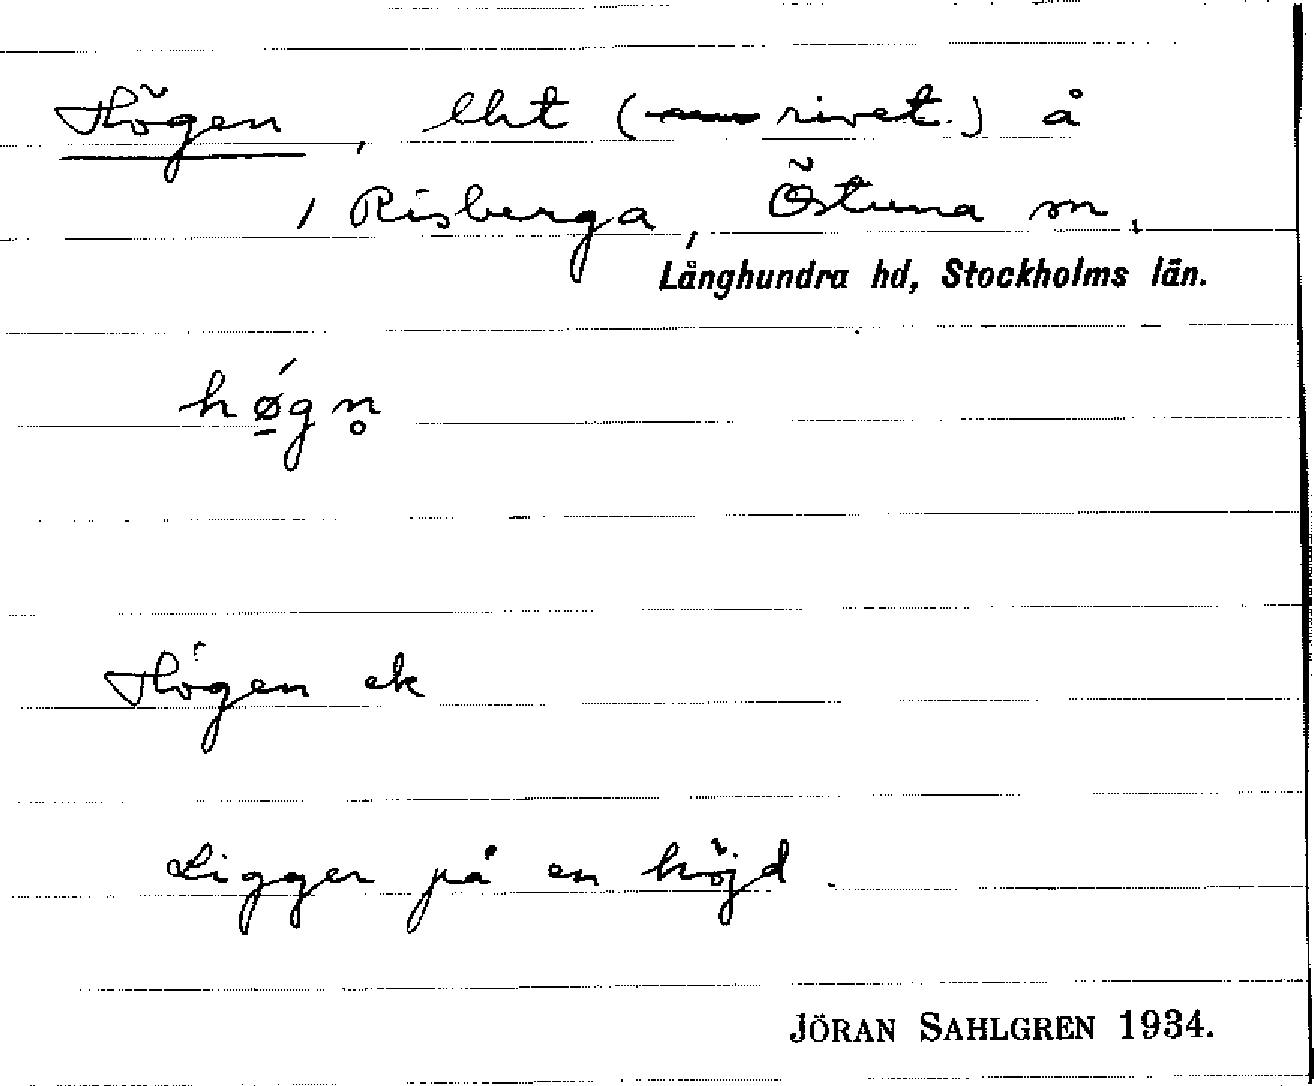 Högen, lht (rivet.) å
, Risberga, Östuna sn,
Långhundra hd, Stockholms län.
hǿ̱gn̥
Högen ek
Ligger på en höjd.
JÖRAN SAHLGREN 1934.